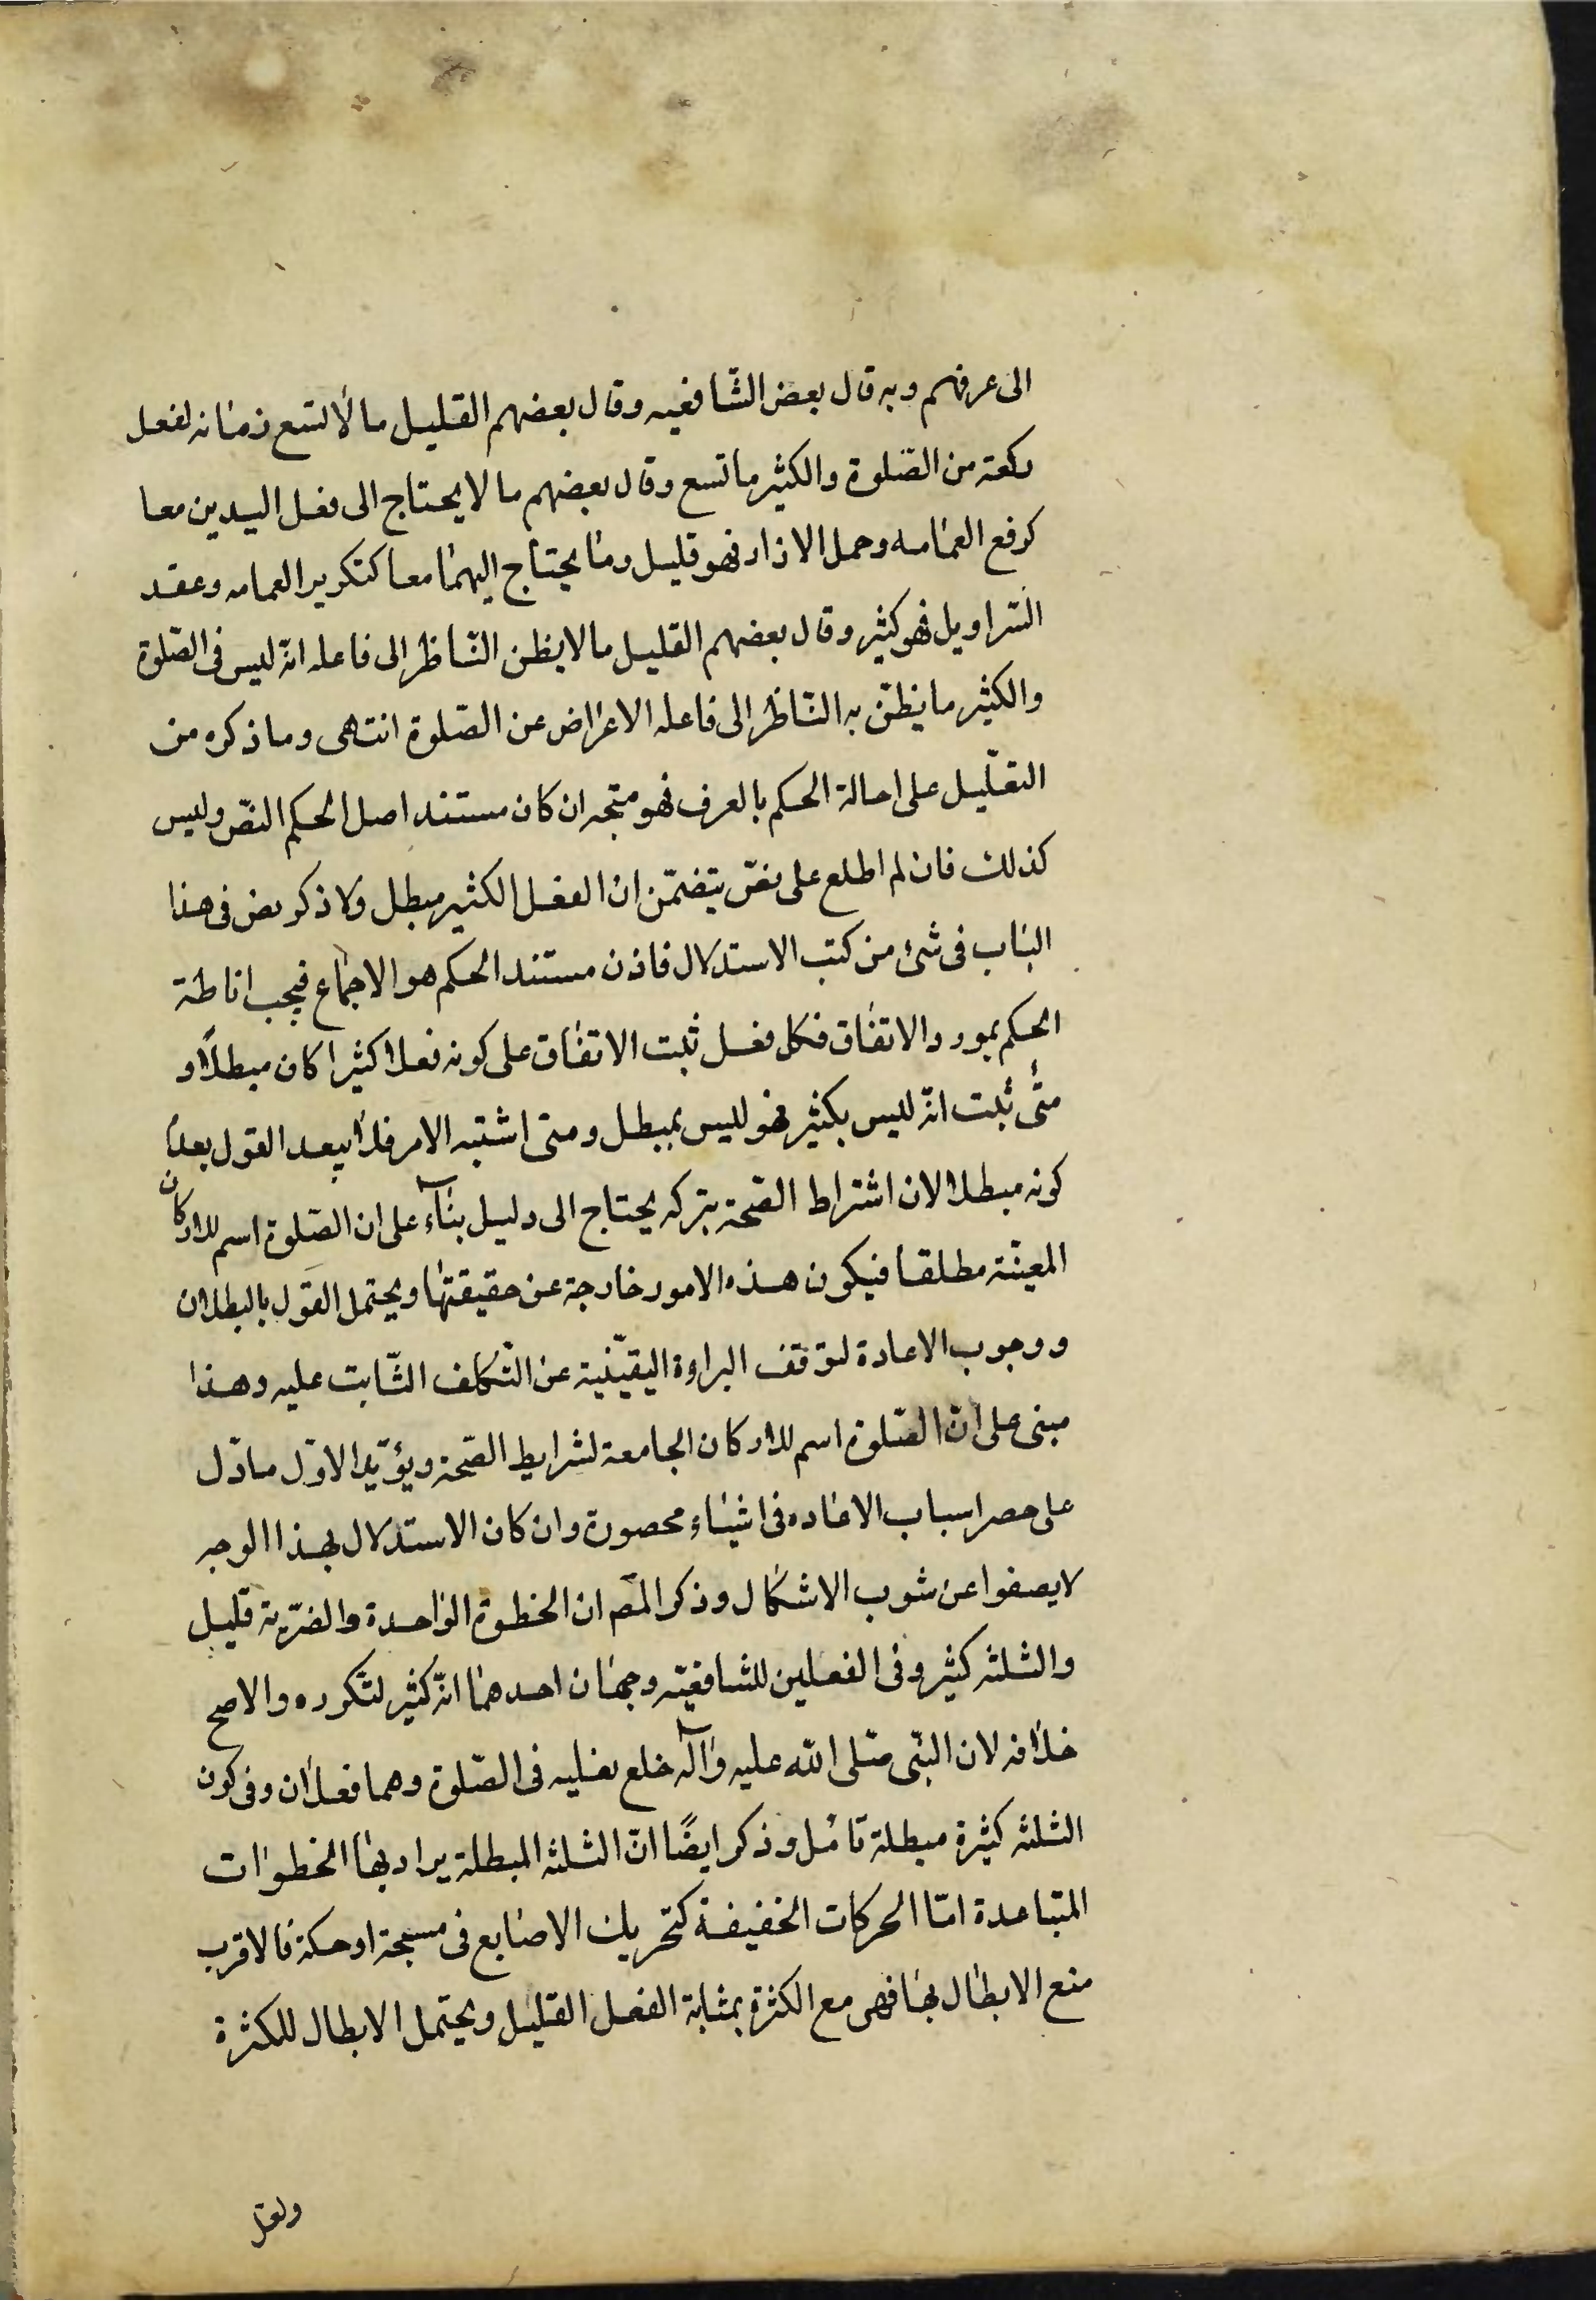 الى عرفهم وبه قال بعض الشّافعيه وقال بعضهم القليل ما لا تسع زمانه لفعل
ركعة من الصّلوة والكثير ما تسع وقال بعضهم ما لا يحتاج الى فعل اليدين معا
كرفع العمامه وحمل الازار فهو قليل وما يحتاج اليهما معا كتكوير العمامه وعقد
السّراويل فهو كثير وقال بعضهم القليل ما لا يظن النّاظر الى فاعله انّه ليس فى الصّلوة
والكثير ما يظنّ به النّاظر الى فاعله الاعراض عن الصّلوة انتهى وما ذكره من
التعليل على احالة الحكم بالعرف فهو متجه ان كان مستند اصل الحكم النصّ وليس
كذلك فان لم اطلع على نصّ يتضمّن انّ الفعل الكثير مبطل ولا ذكر نص فى هذا
الباب فى شئ من كتب الاستدلال فاذن مستند الحكم هو الاجماع فيجب اناطة
الحكم بمورد الاتفاق فكل فعل ثبت الاتفاق على كونه فعلا كثيرا كان مبطلًا و
متى ثبت انّه ليس بكثير فهو ليس بمبطل ومتى اشتبه الامر فلا يبعد القول بعدم
كونه مبطلا لان اشتراط الصّحة بتركه يحتاج الى دليل بناء على ان الصّلوة اسم للاركان
المعيّنة مطلقا فيكون هذه الامور خارجة عن حقيقتها ويحتمل القول بالبطلان
ووجوب الاعادة لتوقف البراءة اليقينية عن التّكلف الثّابت عليه وهذا
مبنى على انّ الصّلوة اسم للاركان الجامعة لشرايط الصّحة ويؤيّد الاوّل ما دّل
على حصر اسباب الاعاده فى اشياء محصورة وان كان الاستدلال بهذا الوجه
لا يصفوا عن شوب الاشكال وذكر المصّ ان الخطوة الواحدة والضّربة قليل
والثلثه كثير وفى الفعلين للشافعيّه وجهان احدهما انّه كثير لتكرره والاصح
خلافه لان النّبى صّلى الله عليه وآله خلع نعليه فى الصّلوة وهما فعلان وفى كون
الثلثه كثيرة مبطلة تامل وذكر ايضًا انّ الثلثه المبطلة يراد بها الخطوات
المتباعدة امّا الحركات الخفيفة كتحريك الاصابع فى مسبحة او حكة فالاقرب
منع الابطال بها فهى مع الكثرة بمثابة الفعل القليل ويحتمل الابطال للكثرة
ولعل